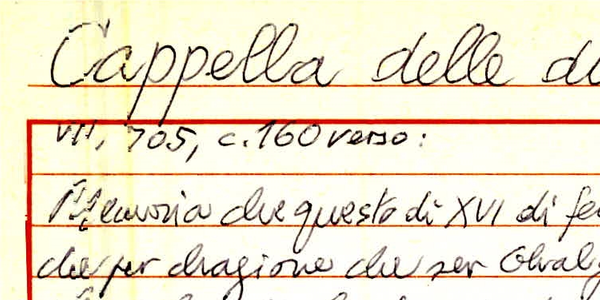 Cappella delle
VII, 705, c. 160 verso:
Memoria che questo dì XVI di fe
che per chagione che ser